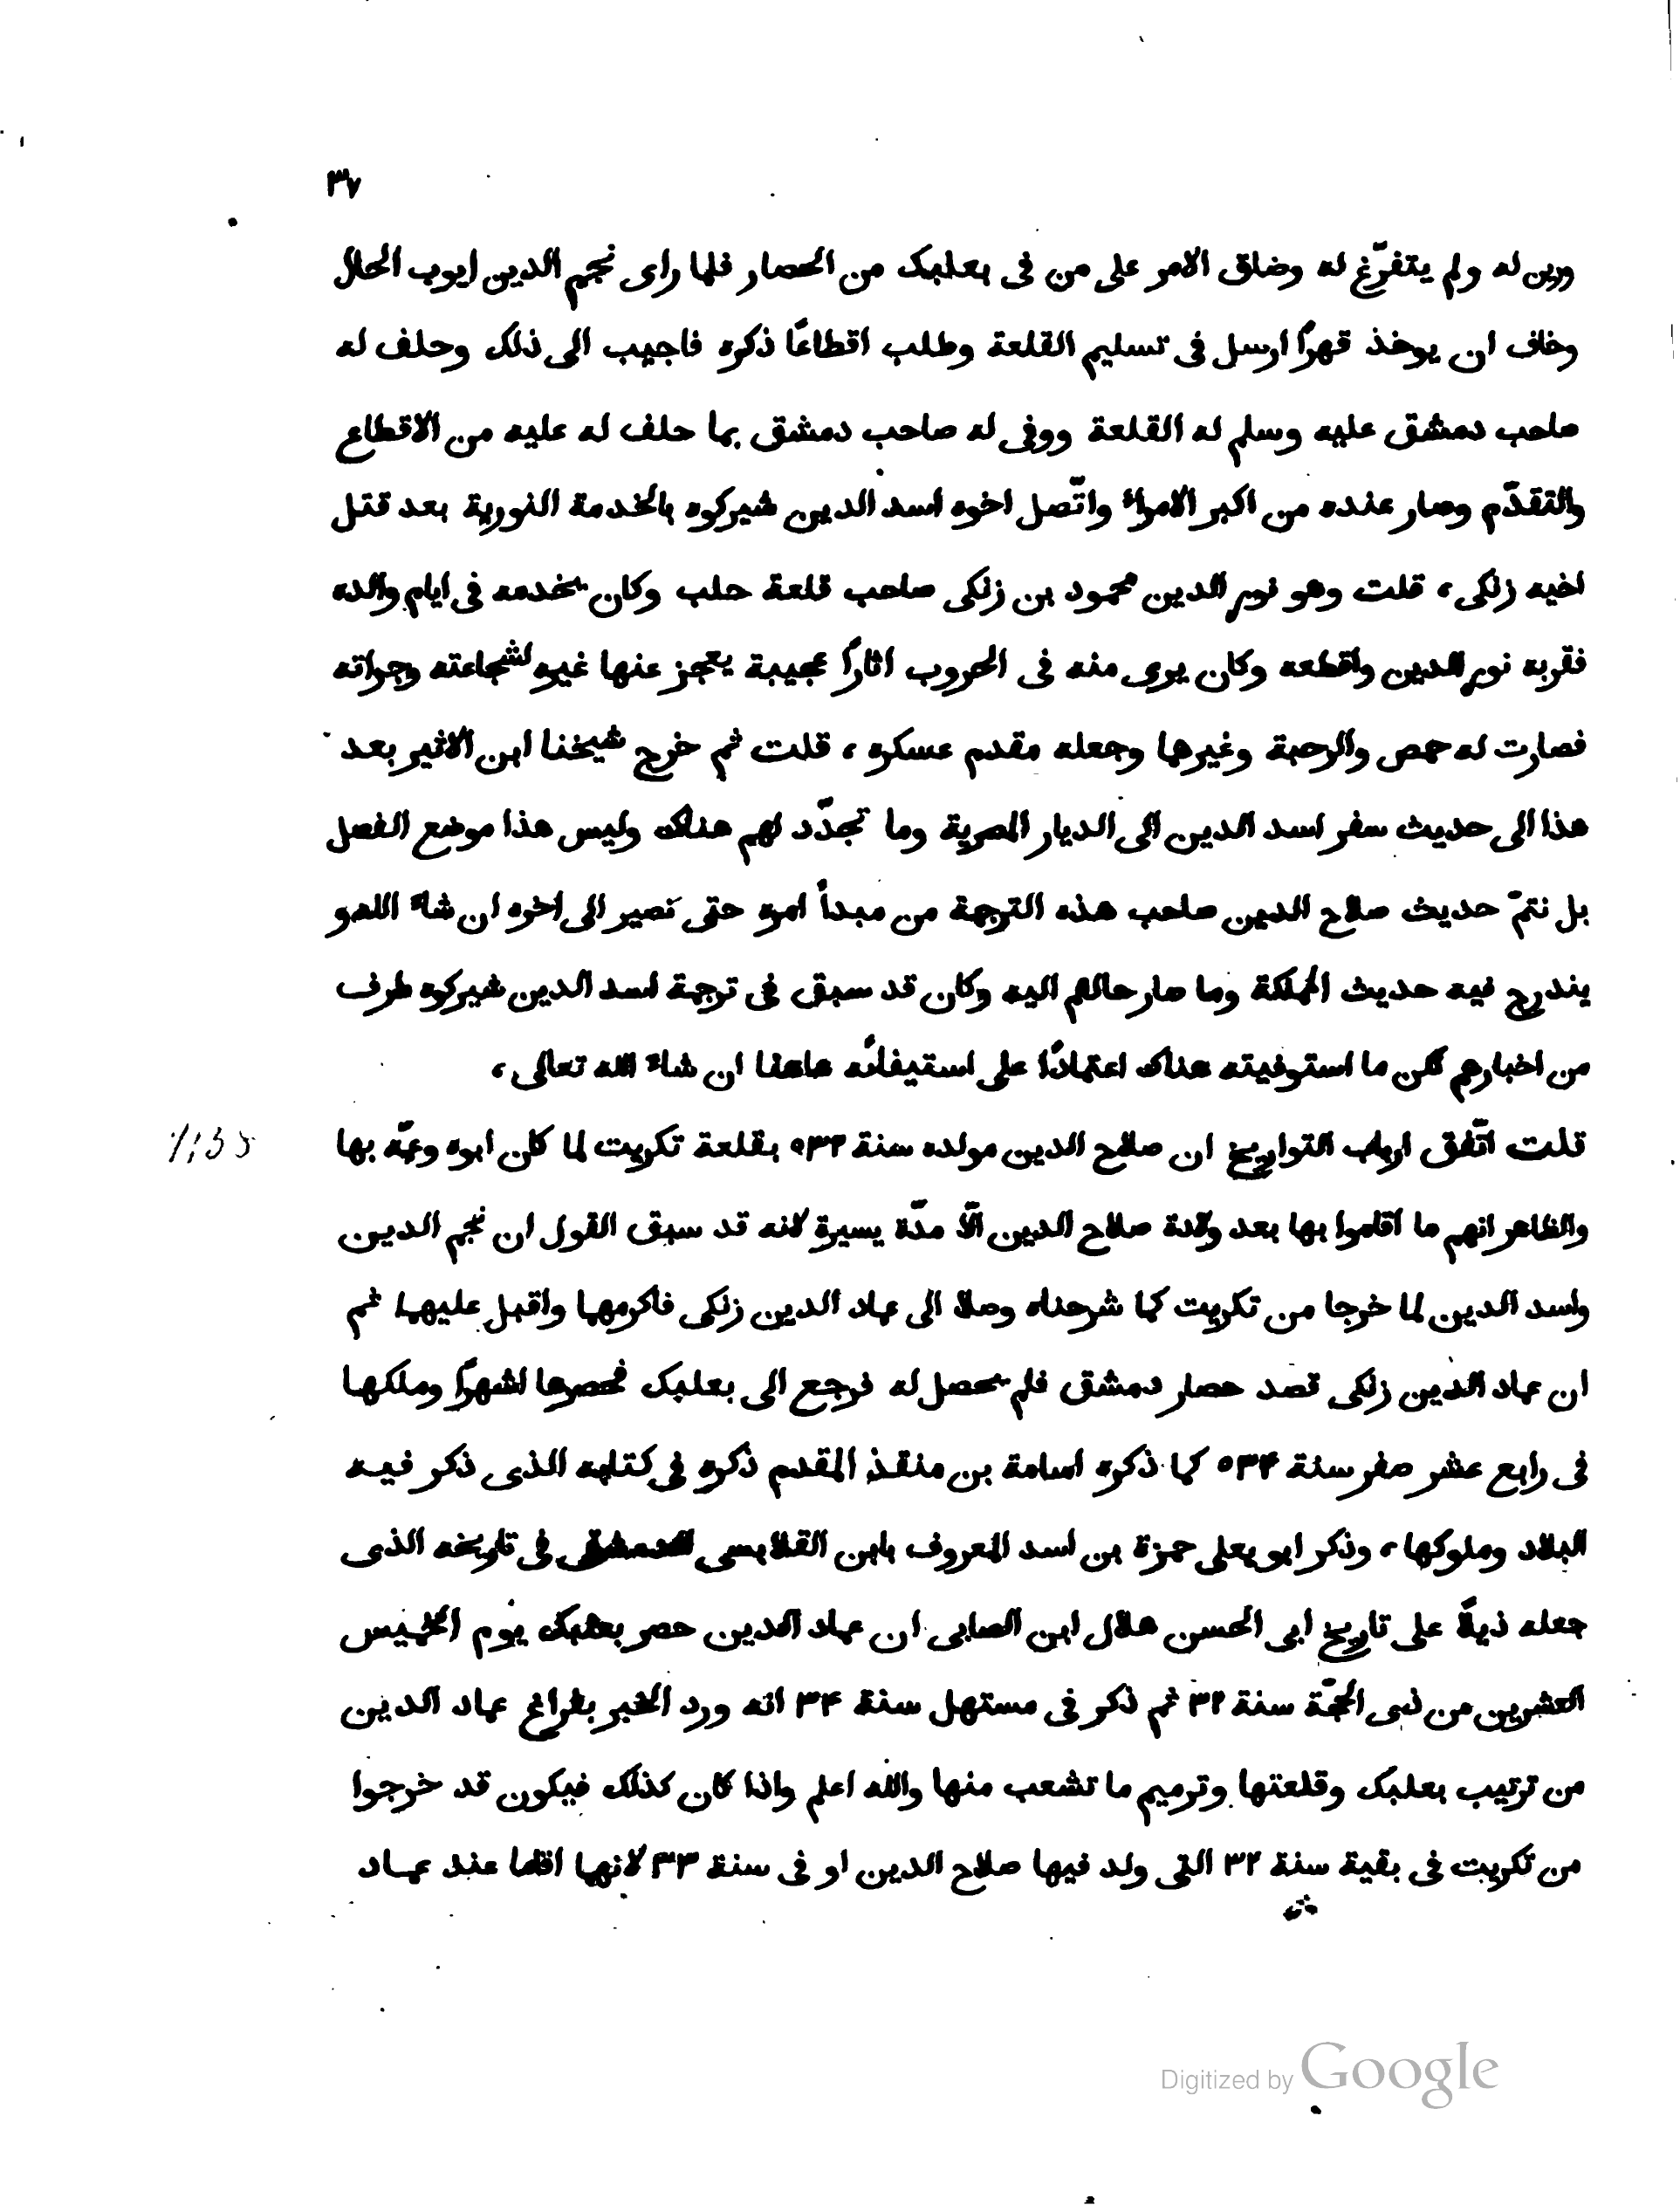 ٣٧
ورين له ولم يتفرّغ له وضاق الامر على من فى بعلبك من الحصار فلما راى نجم الدين ايوب الحال
وخاف ان يوخذ قهرًا ارسل فى تسليم القلعة وطلب اقطاعًا ذكره فاجيب الى ذلك وحلف له
صاحب دمشق عليه وسلم له القلعة ووفى له صاحب دمشق بما حلف له عليه من الاقطاع
والتقدّم وصار عنده من اكبر الامراء واتّصل اخوه اسد الدين شيركوه بالخدمة النورية بعد قتل
اخيه زنكى، قلت وهو نور الدين محمود بن زنكى صاحب قلعة حلب وكان يخدمه فى ايام والده
فقربه نور الدين واقطعه وكان يرى منه فى الحروب اثارًا عجيبة يعجز عنها غيره لشجاعته وجراته
فصارت له حمص والرحبة وغيرها وجعله مقدم عسكره، قلت ثم خرج شيخنا ابن الاثير بعد
هذا الى حديث سفر اسد الدين الى الديار المصرية وما تجدّد لهم هناك وليس هذا موضع الفصل
بل نتمّ حديث صلاح الدين صاحب هذه الترجمة من مبدأ امره حتى نصير الى اخره ان شاء الله و
يندرج فيه حديث المملكة وما صار حالهم اليه وكان قد سبق فى ترجمة اسد الدين شيركوه طرف
من اخبارهم لكن ما استوفيته هناك اعتمادًا على استيفائه هاهنا ان شاء الله تعالى،
قلت اتّفق ارباب التواريخ ان صلاح الدين مولده سنة ٥٣٢ بقلعة تكريت لما كان ابوه وعمّه بها
والظاهر انهم ما اقاموا بها بعد ولادة صلاح الدين الّا مدّة يسيرة لانه قد سبق القول ان نجم الدين
واسد الدين لما خرجا من تكريت كما شرحناه وصلا الى عماد الدين زنكى فاكرمهما واقبل عليهما ثم
ان عماد الدين زنكى قصد حصار دمشق فلم يحصل له فرجع الى بعلبك فحصرها اشهرًا وملكها
فى رابع عشر صفر سنة ٥٣٤ كما ذكره اسامة بن منقذ المقدم ذكره فى كتابه الذى ذكر فيه
البلاد وملوكها، وذكر ابو يعلى حمزة بن اسد المعروف بابن القلانسى الدمشقى فى تاريخه الذى
جعله ذيلًا على تاريخ ابى الحسن هلال ابن الصابى ان عماد الدين حصر بعلبك يوم الخميس
العشرين من ذى الحجّة سنة ٣٢ ثم ذكر فى مستهل سنة ٣٤ انه ورد الخبر بفراغ عماد الدين
من ترتيب بعلبك وقلعتها وترميم ما تشعب منها والله اعلم واذا كان كذلك فيكون قد خرجوا
من تكريت فى بقية سنة ٣٢ التى ولد فيها صلاح الدين او فى سنة ٣٣ لانهما اقاما عند عماد
Digitized by Google